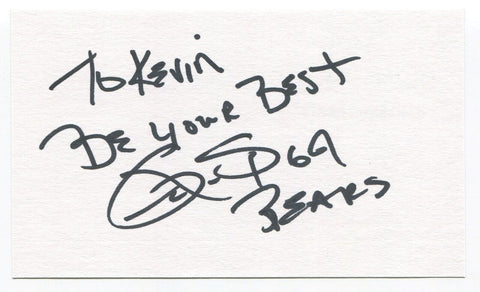 To Kevin
Be Your Best
69
Bears